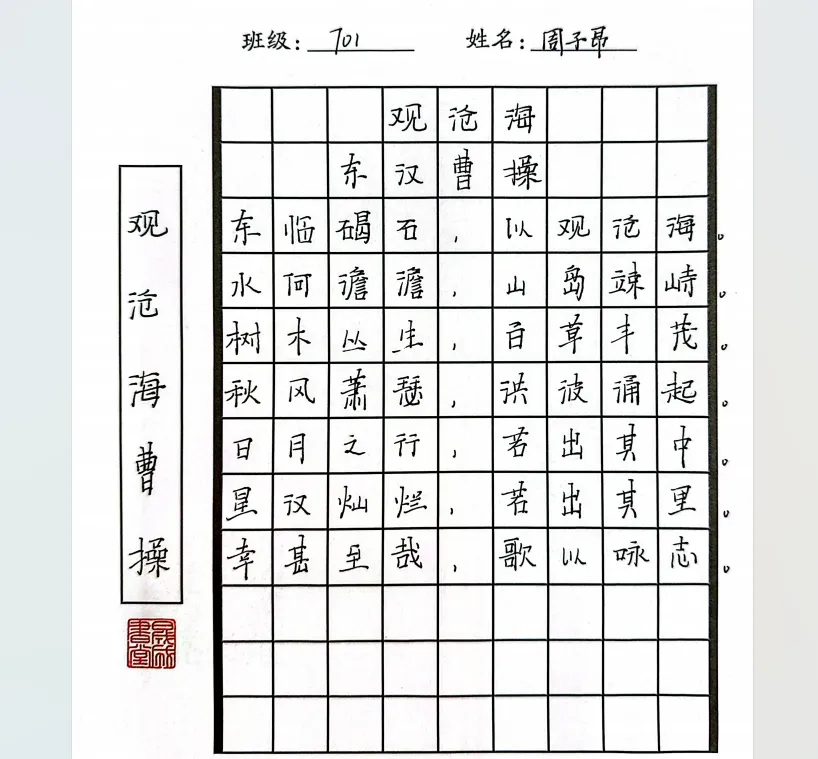 班级：701 姓名：周子昂
观沧海
东汉 曹操
东临碣石，以观沧海。
水何澹澹，山岛竦峙。
树木丛生，百草丰茂。
秋风萧瑟，洪波涌起。
日月之行，若出其中。
星汉灿烂，若出其里。
幸甚至哉，歌以咏志。
观沧海 曹操